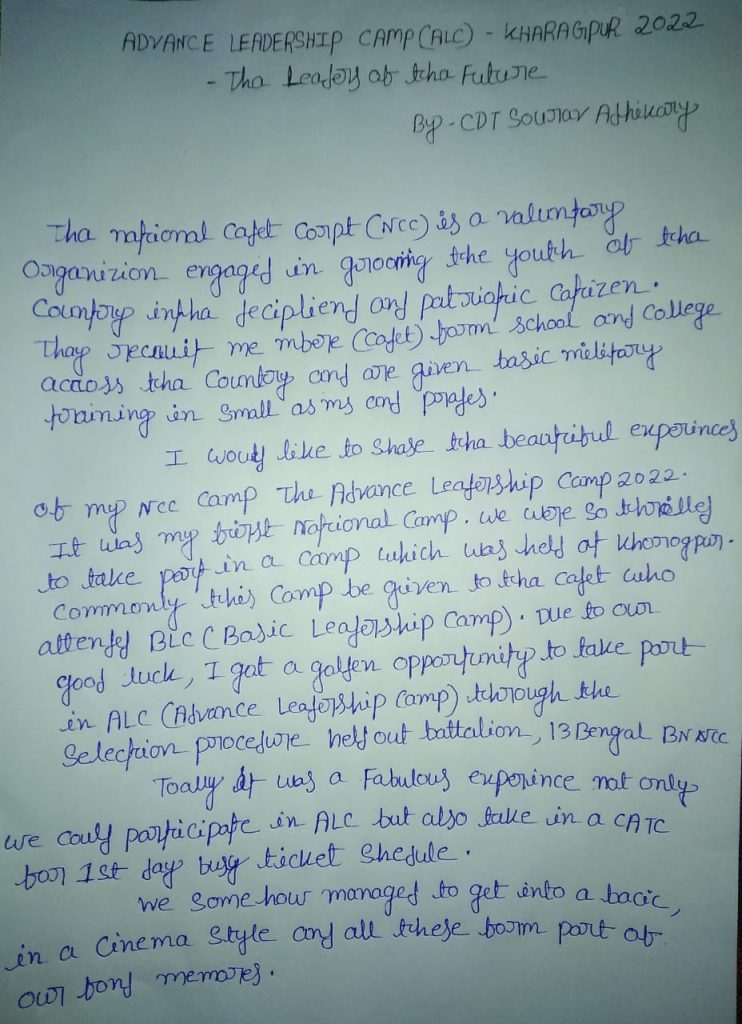 ADVANCE LEADERSHIP CAMP (ALC) - KHARAGPUR 2022
- Tha Leaders of tha Future
By - CDT Sourav Adhikary
Tha national Cadet Corpt (NCC) is a valuntary
Organizion engaged in grooming the youth of tha
Country intha decipliend and patriotic Catizen.
Thay recruit me mbere (Cadet) form school and College
across tha Country and are given basic militory
training in Small asms and prades.
I would like to Shase tha beautiful experinces
of my NCC Camp The Advance Leadership Camp 2022.
It was my first National Camp. we were so thrilled
to take part in a camp which was held at Khoragpur.
Commonly this Camp be given to tha cadet who
attended BLC (Basic Leadership Camp). Due to our
good luck, I got a golden opportunity to take part
in ALC (Advance Leadership Camp) through the
Selection procedure held out battalion, 13 Bengal BN NCC
Toally it was a Fabulous experince not only
we could participate in ALC but also take in a CATC
for 1st day busy ticket Shedule.
we Some how managed to get into a bacic,
in a Cinema Style and all these form part of
our fond memores.